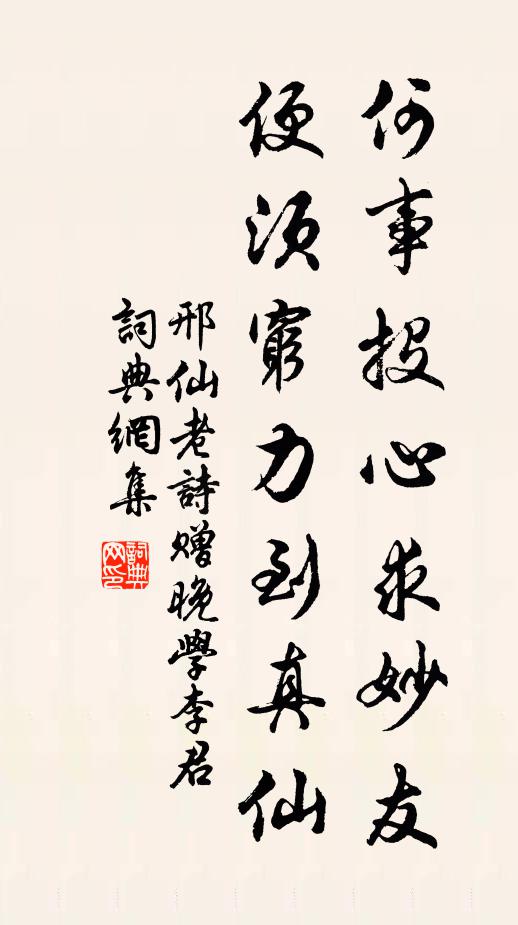 何事投心求妙友
便須窮力到真仙
邢仙老詩贈晚學李君
詞典網集
詞典網印